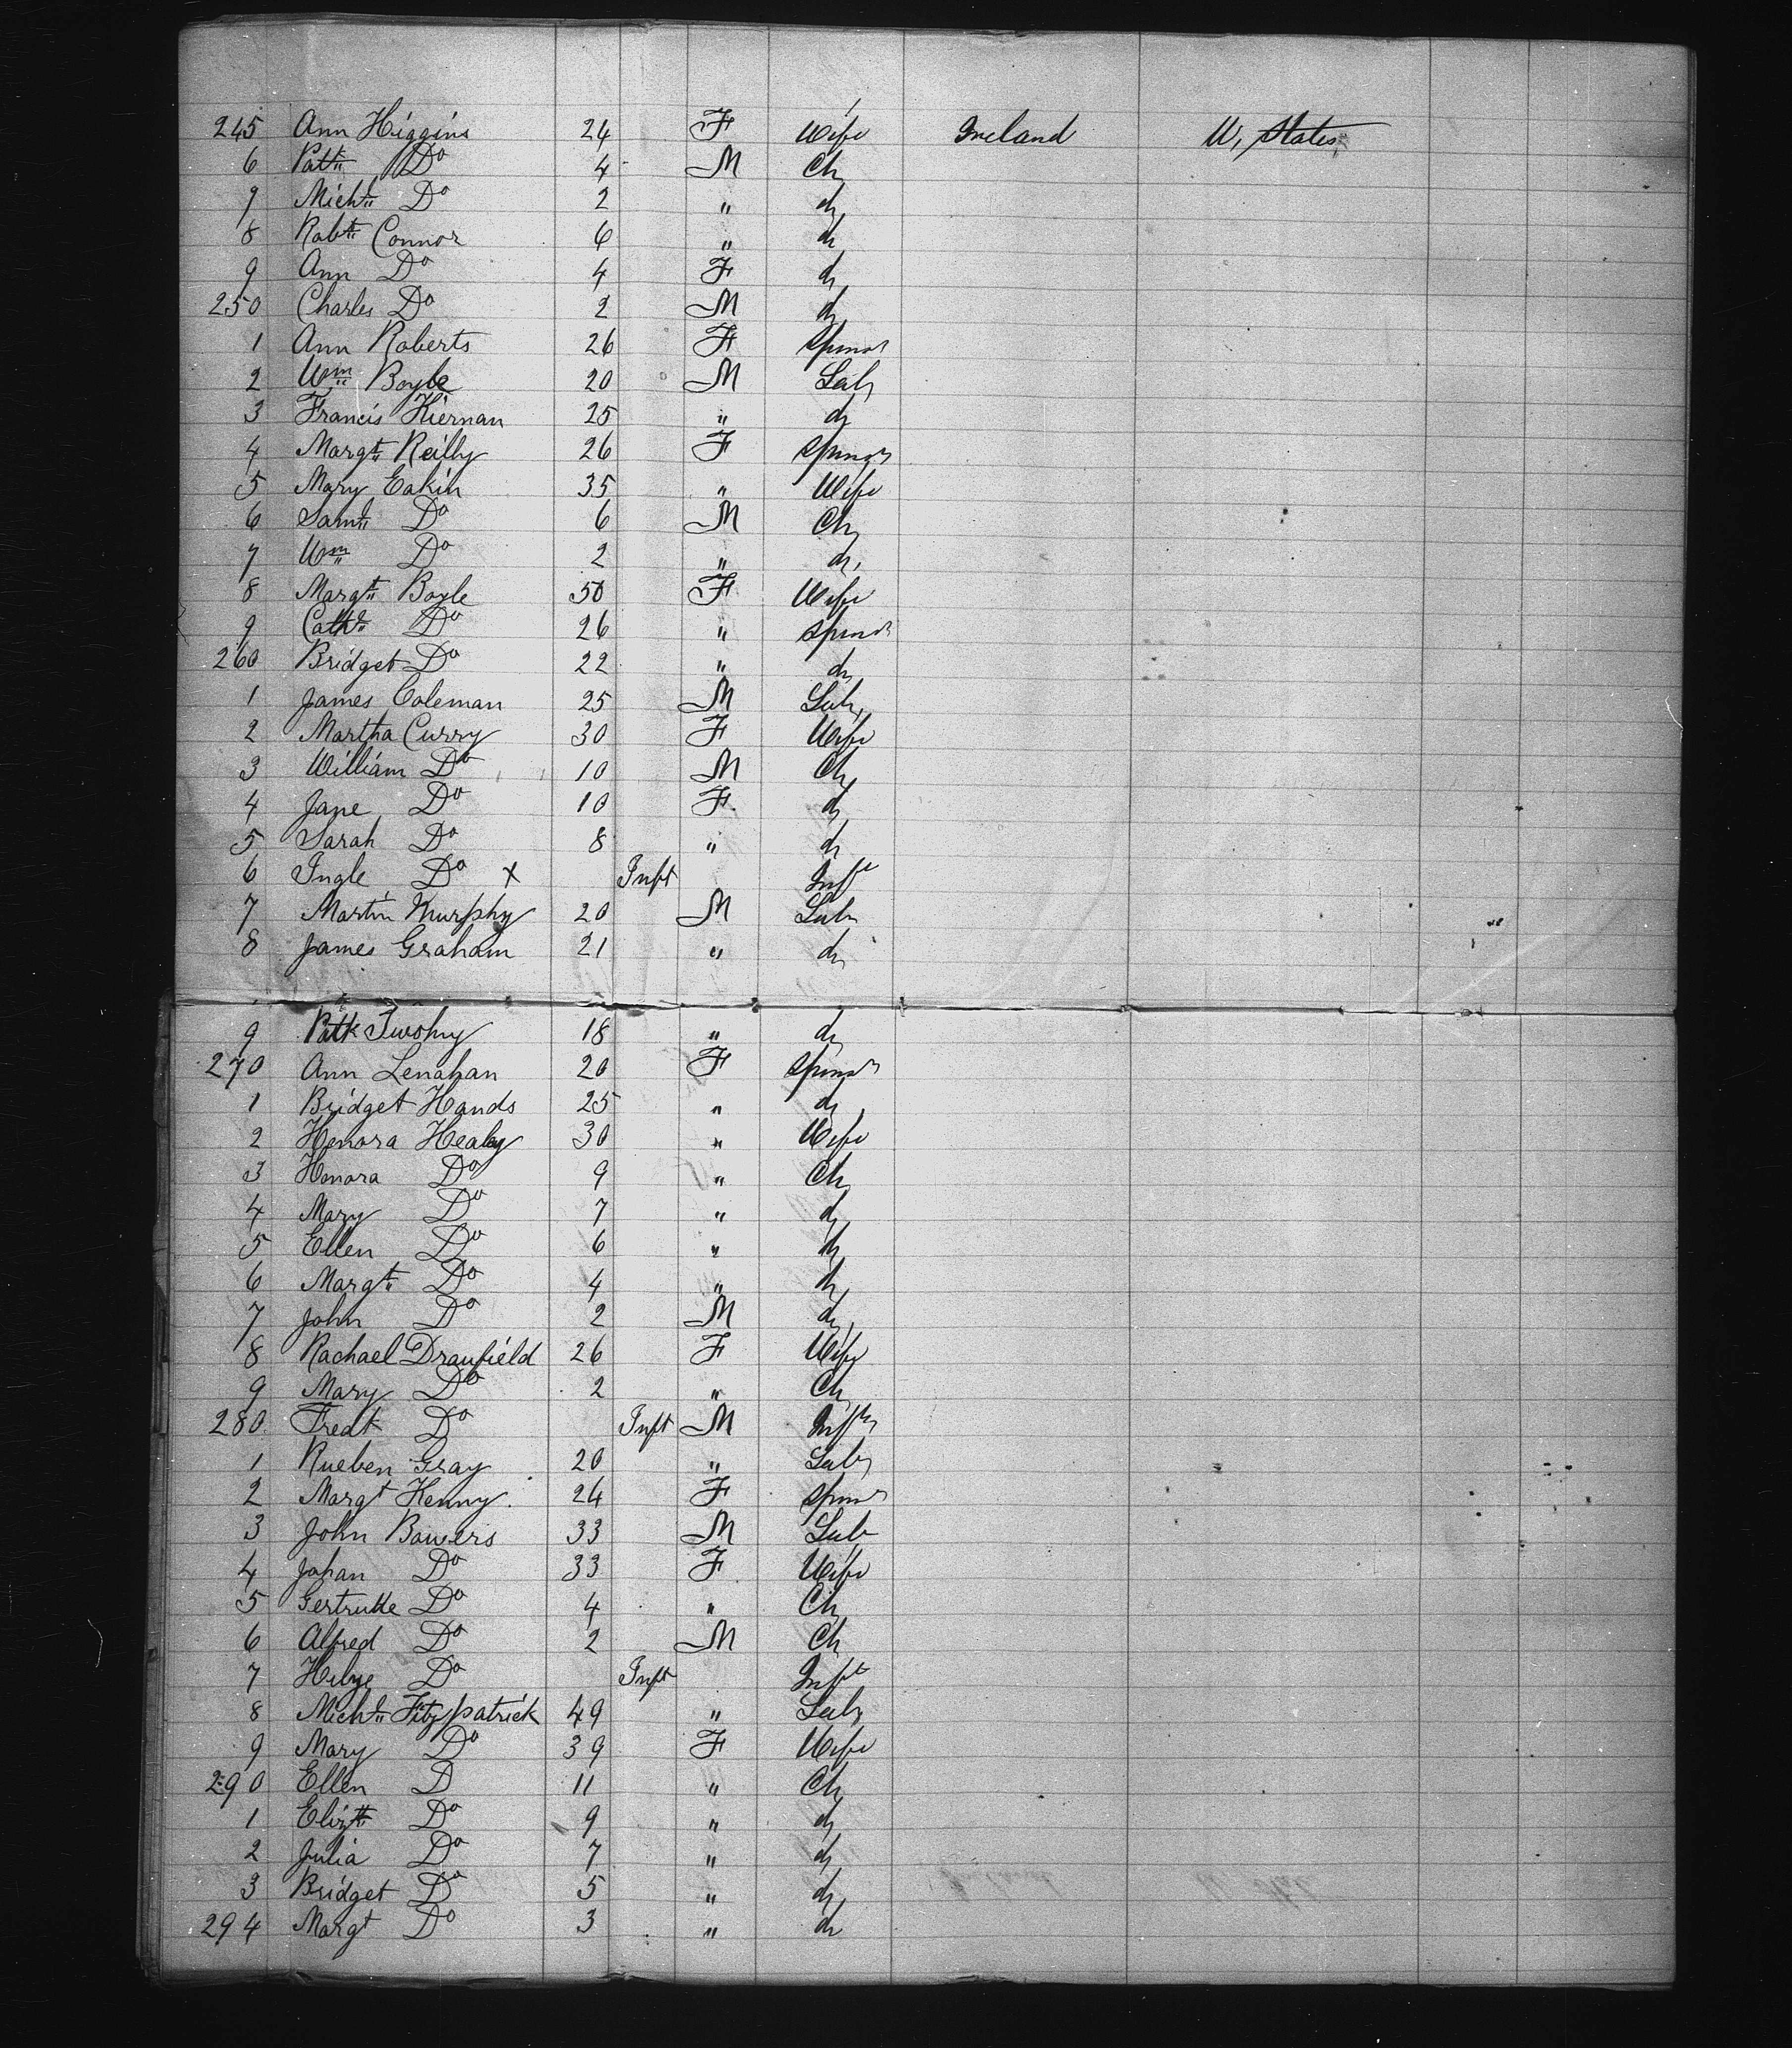 245 Ann Higgins 24 F Wife Ireland U, States
6 Patk Do 4 M Ch,
7 Michl Do 2 " do,
8 Robt Connor 6 " do
9 Ann Do 4 F do,
250 Charles Do 2 M do,
1 Ann Roberts 26 F Spinsr
2 Wm Boyle 20 M Lab,
3 Francis Kiernan 25 " do
4 Margt Reilly 26 F Spinsr
5 Mary Eakin 35 " Wife
6 Saml Do 6 M Ch,
7 Wm Do 2 " do,
8 Margt Boyle 50 F Wife
9 Cathe Do 26 " Spinsr
260 Bridget Do 22 " do,
1 James Coleman 25 M Lab,
2 Martha Curry 30 F Wife
3 William Do 10 M Ch,
4 Jane Do 10 F do,
5 Sarah Do 8 " do
6 Ingle Do X Inft Inft
7 Martin Murphy 20 M Lab
8 James Graham 21 " do,
9 Patk Twohy 18 " do,
270 Ann Lenahan 20 F Spinsr
1 Bridget Hands 25 " do,
2 Henora Healey 30 " Wife
3 Honora Do 9 " Ch,
4 Mary Do 7 " do,
5 Ellen Do 6 " do,
6 Margt Do 4 " do,
7 John Do 2 M do,
8 Rachael Draufield 26 F Wife
9 Mary Do 2 " Ch,
280 Fredk Do Inft M Inft,
1 Rueben Gray 20 " Lab,
2 Margt Kenny 24 F Spinsr
3 John Bowers 33 M Lab
4 Johan Do 33 F Wife
5 Gertrude Do 4 " Ch,
6 Alfred Do 2 M Ch,
7 Do Inft Inft
8 Michl Fitzpatrick 49 " Lab,
9 Mary Do 39 F Wife
290 Ellen D 11 " Ch,
1 Elizth Do 9 " do,
2 Julia Do 7 " do,
3 Bridget Do 5 " do,
294 Margt Do 3 " do